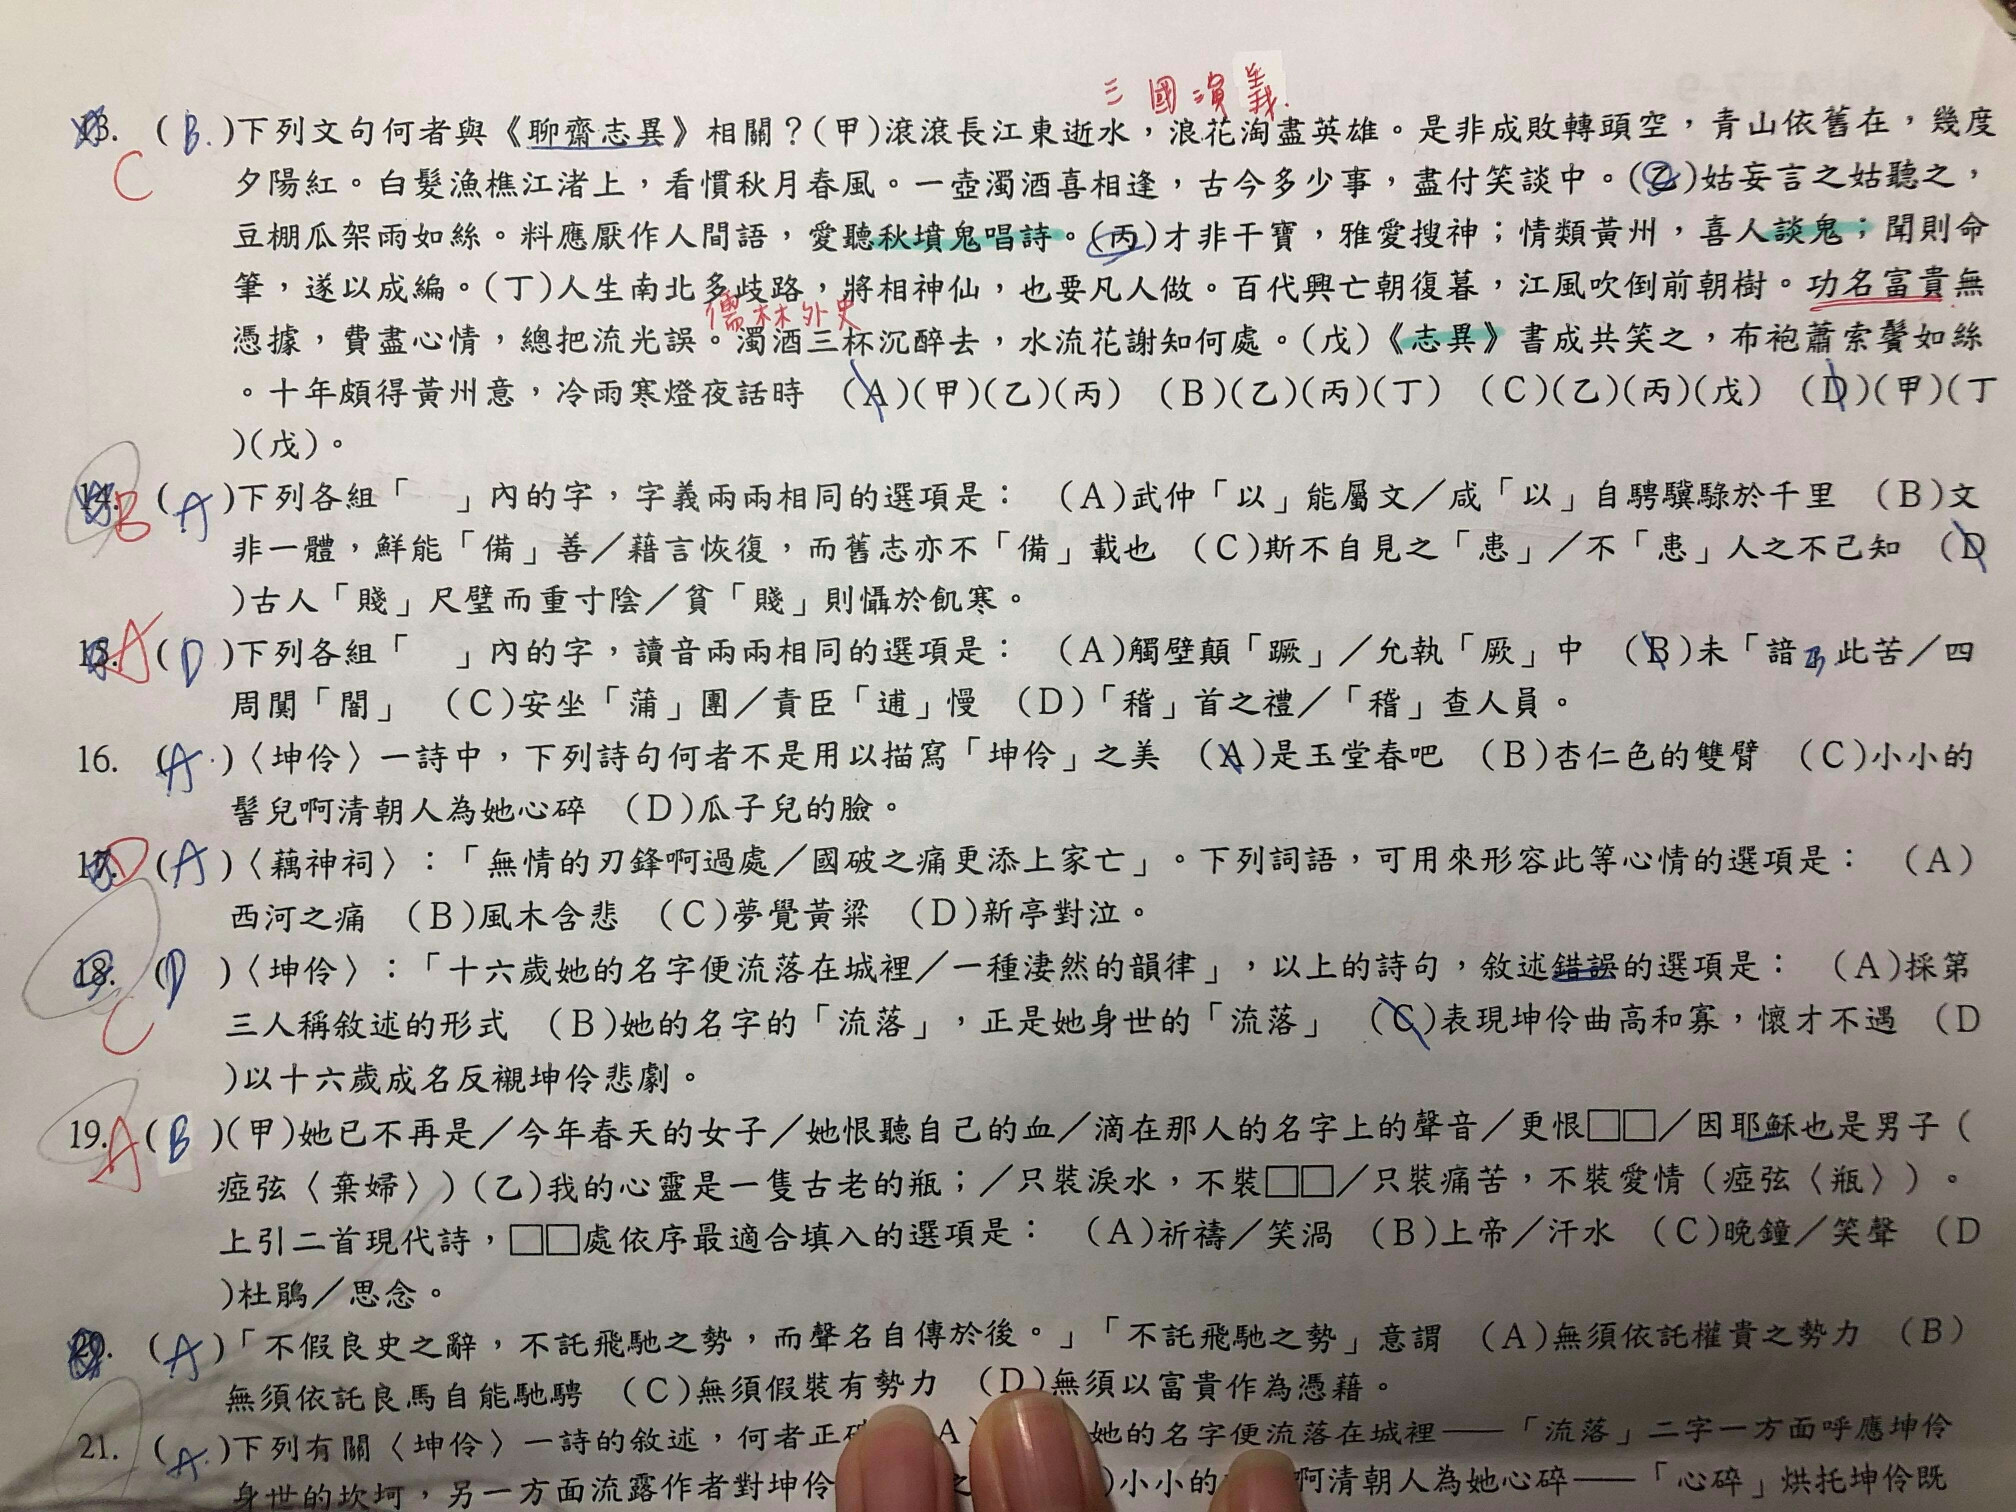 三國演義.
13. (B.)下列文句何者與《聊齋志異》相關？(甲)滾滾長江東逝水，浪花淘盡英雄。是非成敗轉頭空，青山依舊在，幾度
C
夕陽紅。白髮漁樵江渚上，看慣秋月春風。一壺濁酒喜相逢，古今多少事，盡付笑談中。(乙)姑妄言之姑聽之，
豆棚瓜架雨如絲。料應厭作人間語，愛聽秋墳鬼唱詩。(丙)才非干寶，雅愛搜神；情類黃州，喜人談鬼；聞則命
筆，遂以成編。(丁)人生南北多歧路，將相神仙，也要凡人做。百代興亡朝復暮，江風吹倒前朝樹。功名富貴無
儒林外史
憑據，費盡心情，總把流光誤。濁酒三杯沉醉去，水流花謝知何處。(戊)《志異》書成共笑之，布袍蕭索鬢如絲
。十年頗得黃州意，冷雨寒燈夜話時 (A)(甲)(乙)(丙) (B)(乙)(丙)(丁) (C)(乙)(丙)(戊) (D)(甲)(丁
)(戊)。
14. B (A)下列各組「 」內的字，字義兩兩相同的選項是： (A)武仲「以」能屬文／咸「以」自騁驥騄於千里 (B)文
非一體，鮮能「備」善／藉言恢復，而舊志亦不「備」載也 (C)斯不自見之「患」／不「患」人之不己知 (D
)古人「賤」尺璧而重寸陰／貧「賤」則懾於飢寒。
15. A (D)下列各組「 」內的字，讀音兩兩相同的選項是： (A)觸壁顛「蹶」／允執「厥」中 (B)未「諳 此苦／四
周闃「闇」 (C)安坐「蒲」團／責臣「逋」慢 (D)「稽」首之禮／「稽」查人員。
16. (A.)〈坤伶〉一詩中，下列詩句何者不是用以描寫「坤伶」之美 (A)是玉堂春吧 (B)杏仁色的雙臂 (C)小小的
髻兒啊清朝人為她心碎 (D)瓜子兒的臉。
17. D (A)〈藕神祠〉：「無情的刃鋒啊過處／國破之痛更添上家亡」。下列詞語，可用來形容此等心情的選項是： (A)
西河之痛 (B)風木含悲 (C)夢覺黃粱 (D)新亭對泣。
18. (D)〈坤伶〉：「十六歲她的名字便流落在城裡／一種淒然的韻律」，以上的詩句，敘述錯誤的選項是： (A)採第
C
三人稱敘述的形式 (B)她的名字的「流落」，正是她身世的「流落」 (C)表現坤伶曲高和寡，懷才不遇 (D
)以十六歲成名反襯坤伶悲劇。
19. A (B)(甲)她已不再是／今年春天的女子／她恨聽自己的血／滴在那人的名字上的聲音／更恨□□／因耶穌也是男子（
瘂弦〈棄婦〉）(乙)我的心靈是一隻古老的瓶；／只裝淚水，不裝□□／只裝痛苦，不裝愛情（瘂弦〈瓶〉）。
上引二首現代詩，□□處依序最適合填入的選項是： (A)祈禱／笑渦 (B)上帝／汗水 (C)晚鐘／笑聲 (D
)杜鵑／思念。
20. (A)「不假良史之辭，不託飛馳之勢，而聲名自傳於後。」「不託飛馳之勢」意謂 (A)無須依託權貴之勢力 (B)
無須依託良馬自能馳騁 (C)無須假裝有勢力 (D)無須以富貴作為憑藉。
21. (A.)下列有關〈坤伶〉一詩的敘述，何者正 A 她的名字便流落在城裡——「流落」二字一方面呼應坤伶
身世的坎坷，另一方面流露作者對坤伶 )小小的 啊清朝人為她心碎——「心碎」烘托坤伶既